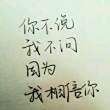 你不说
我不问
因为
我相信你